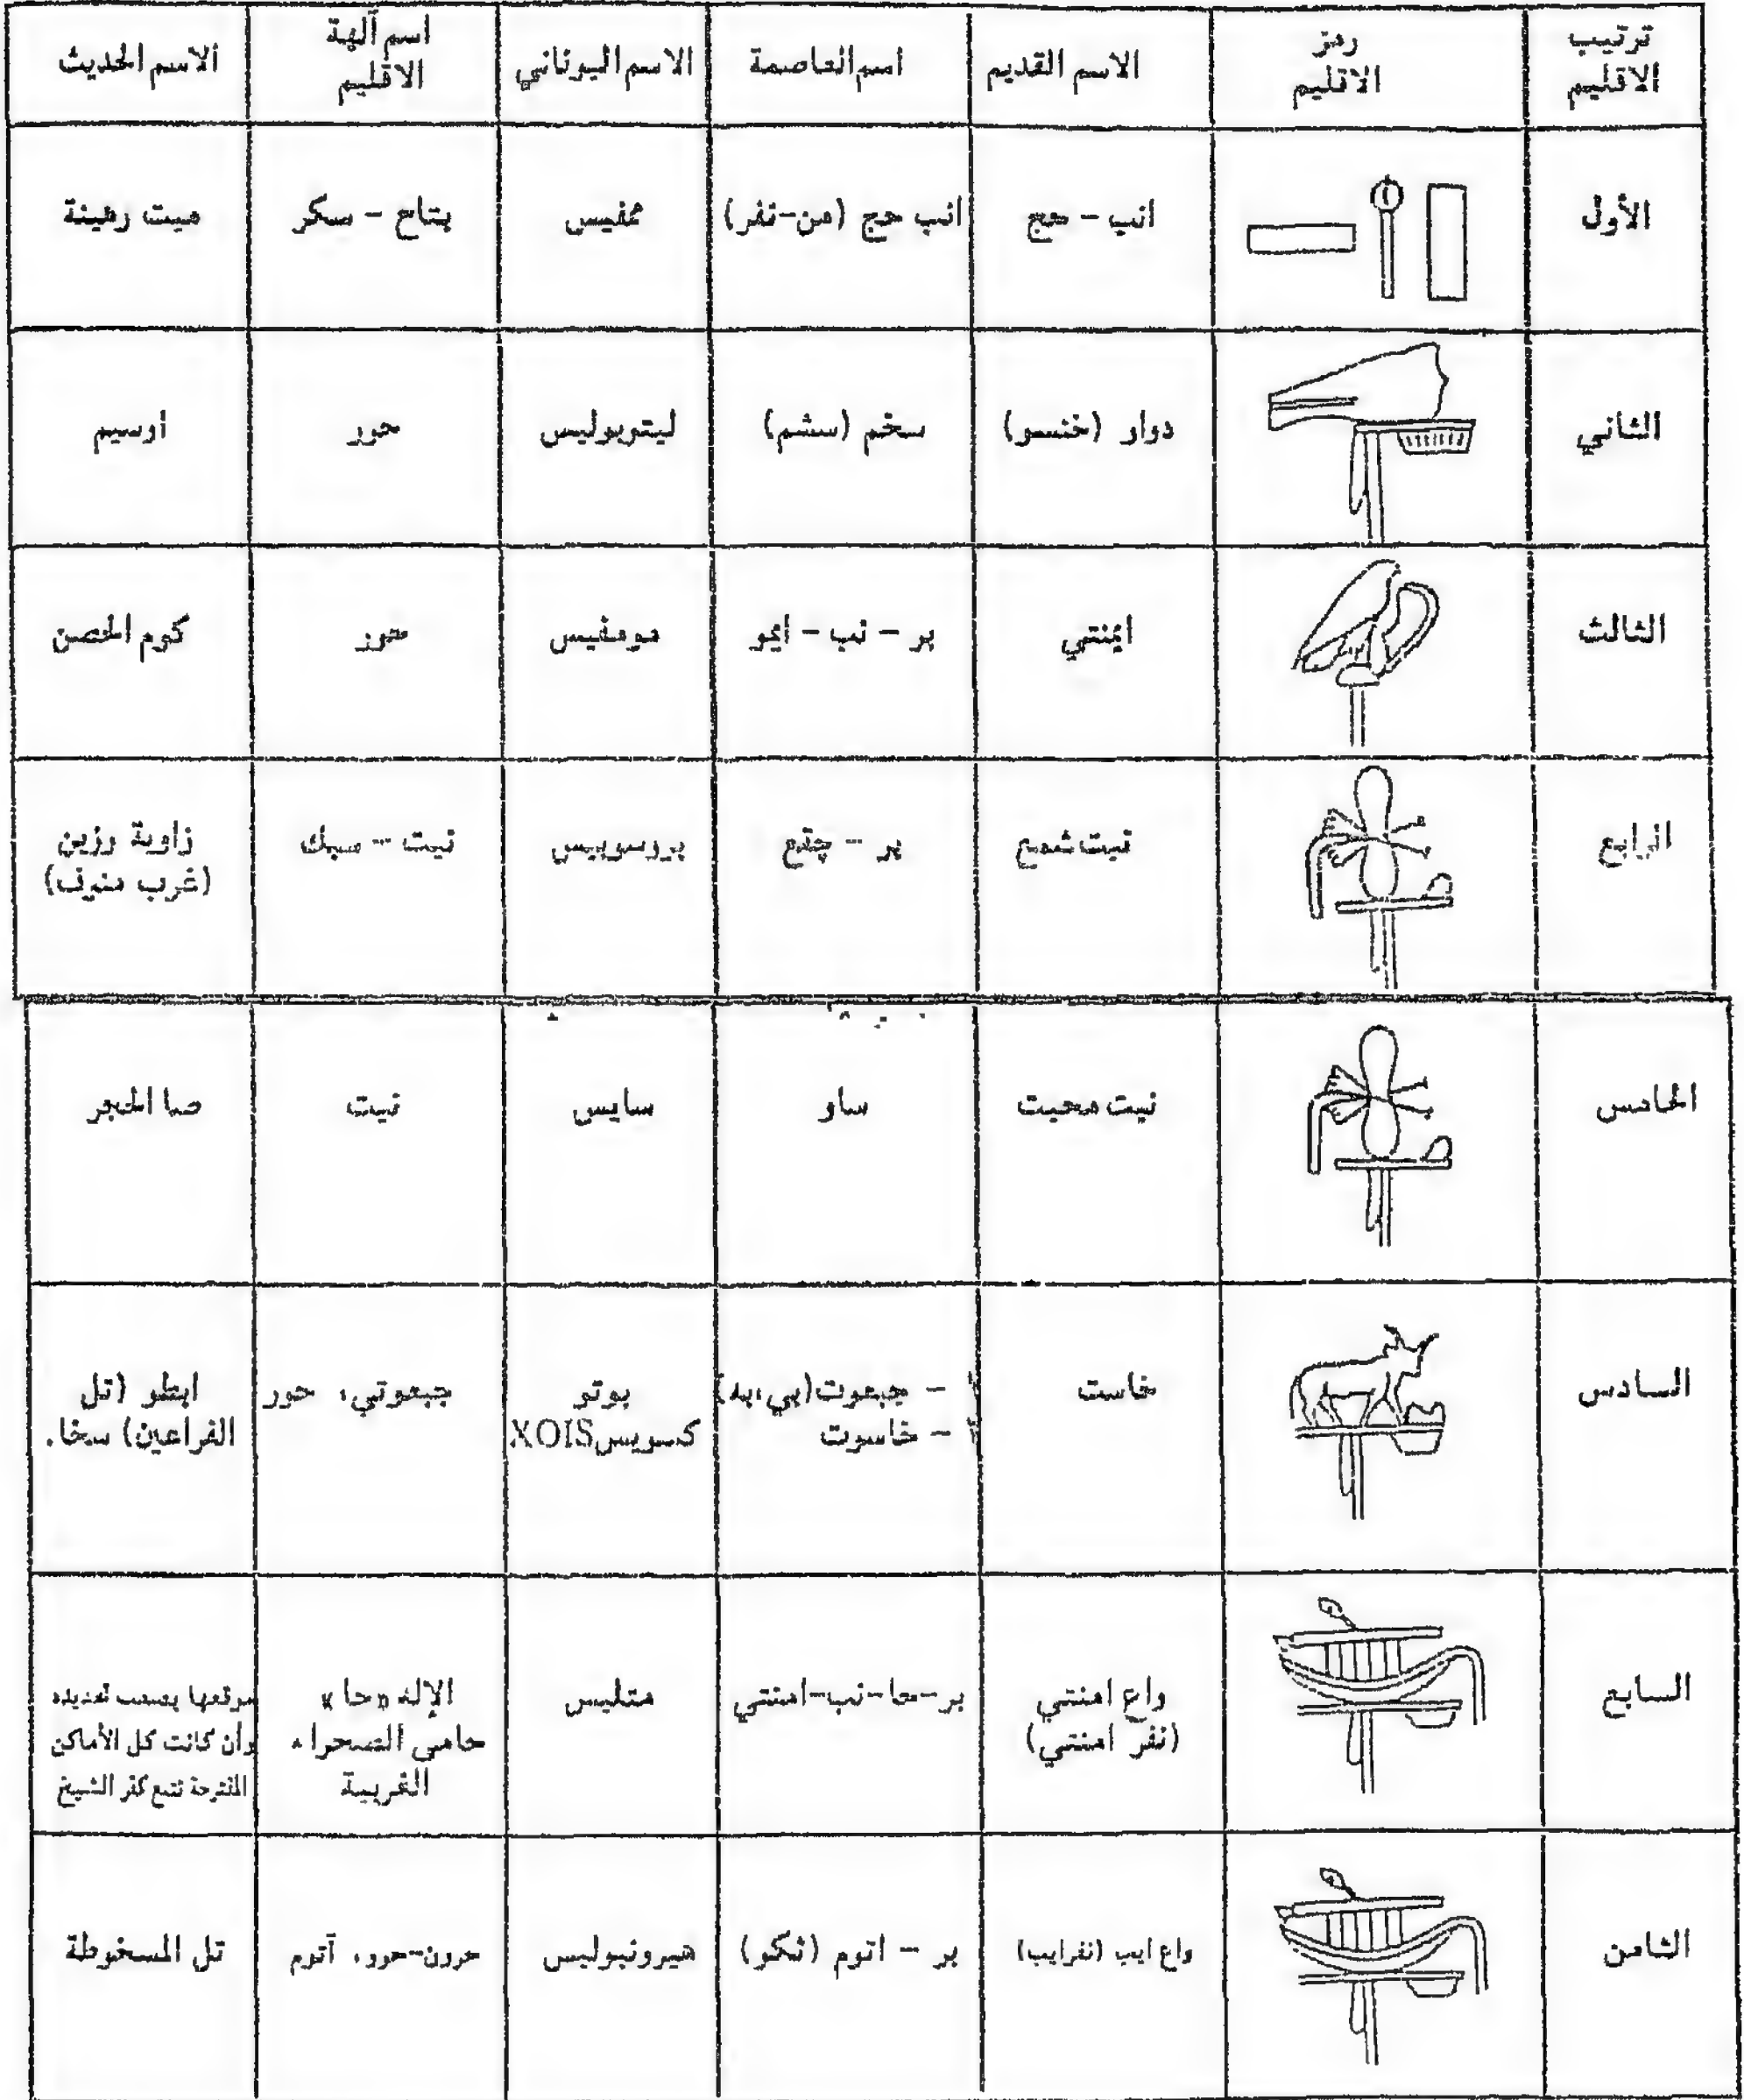 ترتيب الاقليم
رمز الاقليم
الاسم القديم
اسم العاصمة
الاسم اليوناني
اسم آلهة الاقليم
الاسم الحديث
الأول
انب - حج
انب حج (من-نفر)
ممفيس
بتاح - سكر
ميت رهينة
الثاني
دوار (خنسو)
سخم (سشم)
ليتوبوليس
حور
اوسيم
الثالث
ايمنتي
بر - نب - ايمو
مومفيس
حور
كوم الحصن
الرابع
نيت شمع
بر - چقع
بروسوبيس
نيت - سبك
زاوية رزين
(غرب منوف)
الخامس
نيت محيت
ساو
سايس
نيت
صا الحجر
السادس
خاست
- جبعوت(بي،به)
- خاسوت
بوتو
كسويس XOIS
جبعوتي، حور
ابطو (تل
الفراعين) سخا.
السابع
واع امنتي
(نفر امنتي)
بر-حا-نب-امنتي
متليس
الإله «حا»
حامي الصحراء
الغربية
موقعها يصعب تحديده
وأن كانت كل الأماكن
المقترحة تتبع كفر الشيخ
الثامن
واع ايب (نفرايب)
بر - اتوم (ثكو)
هيرونبوليس
حرون-حور، آتوم
تل المسخوطة